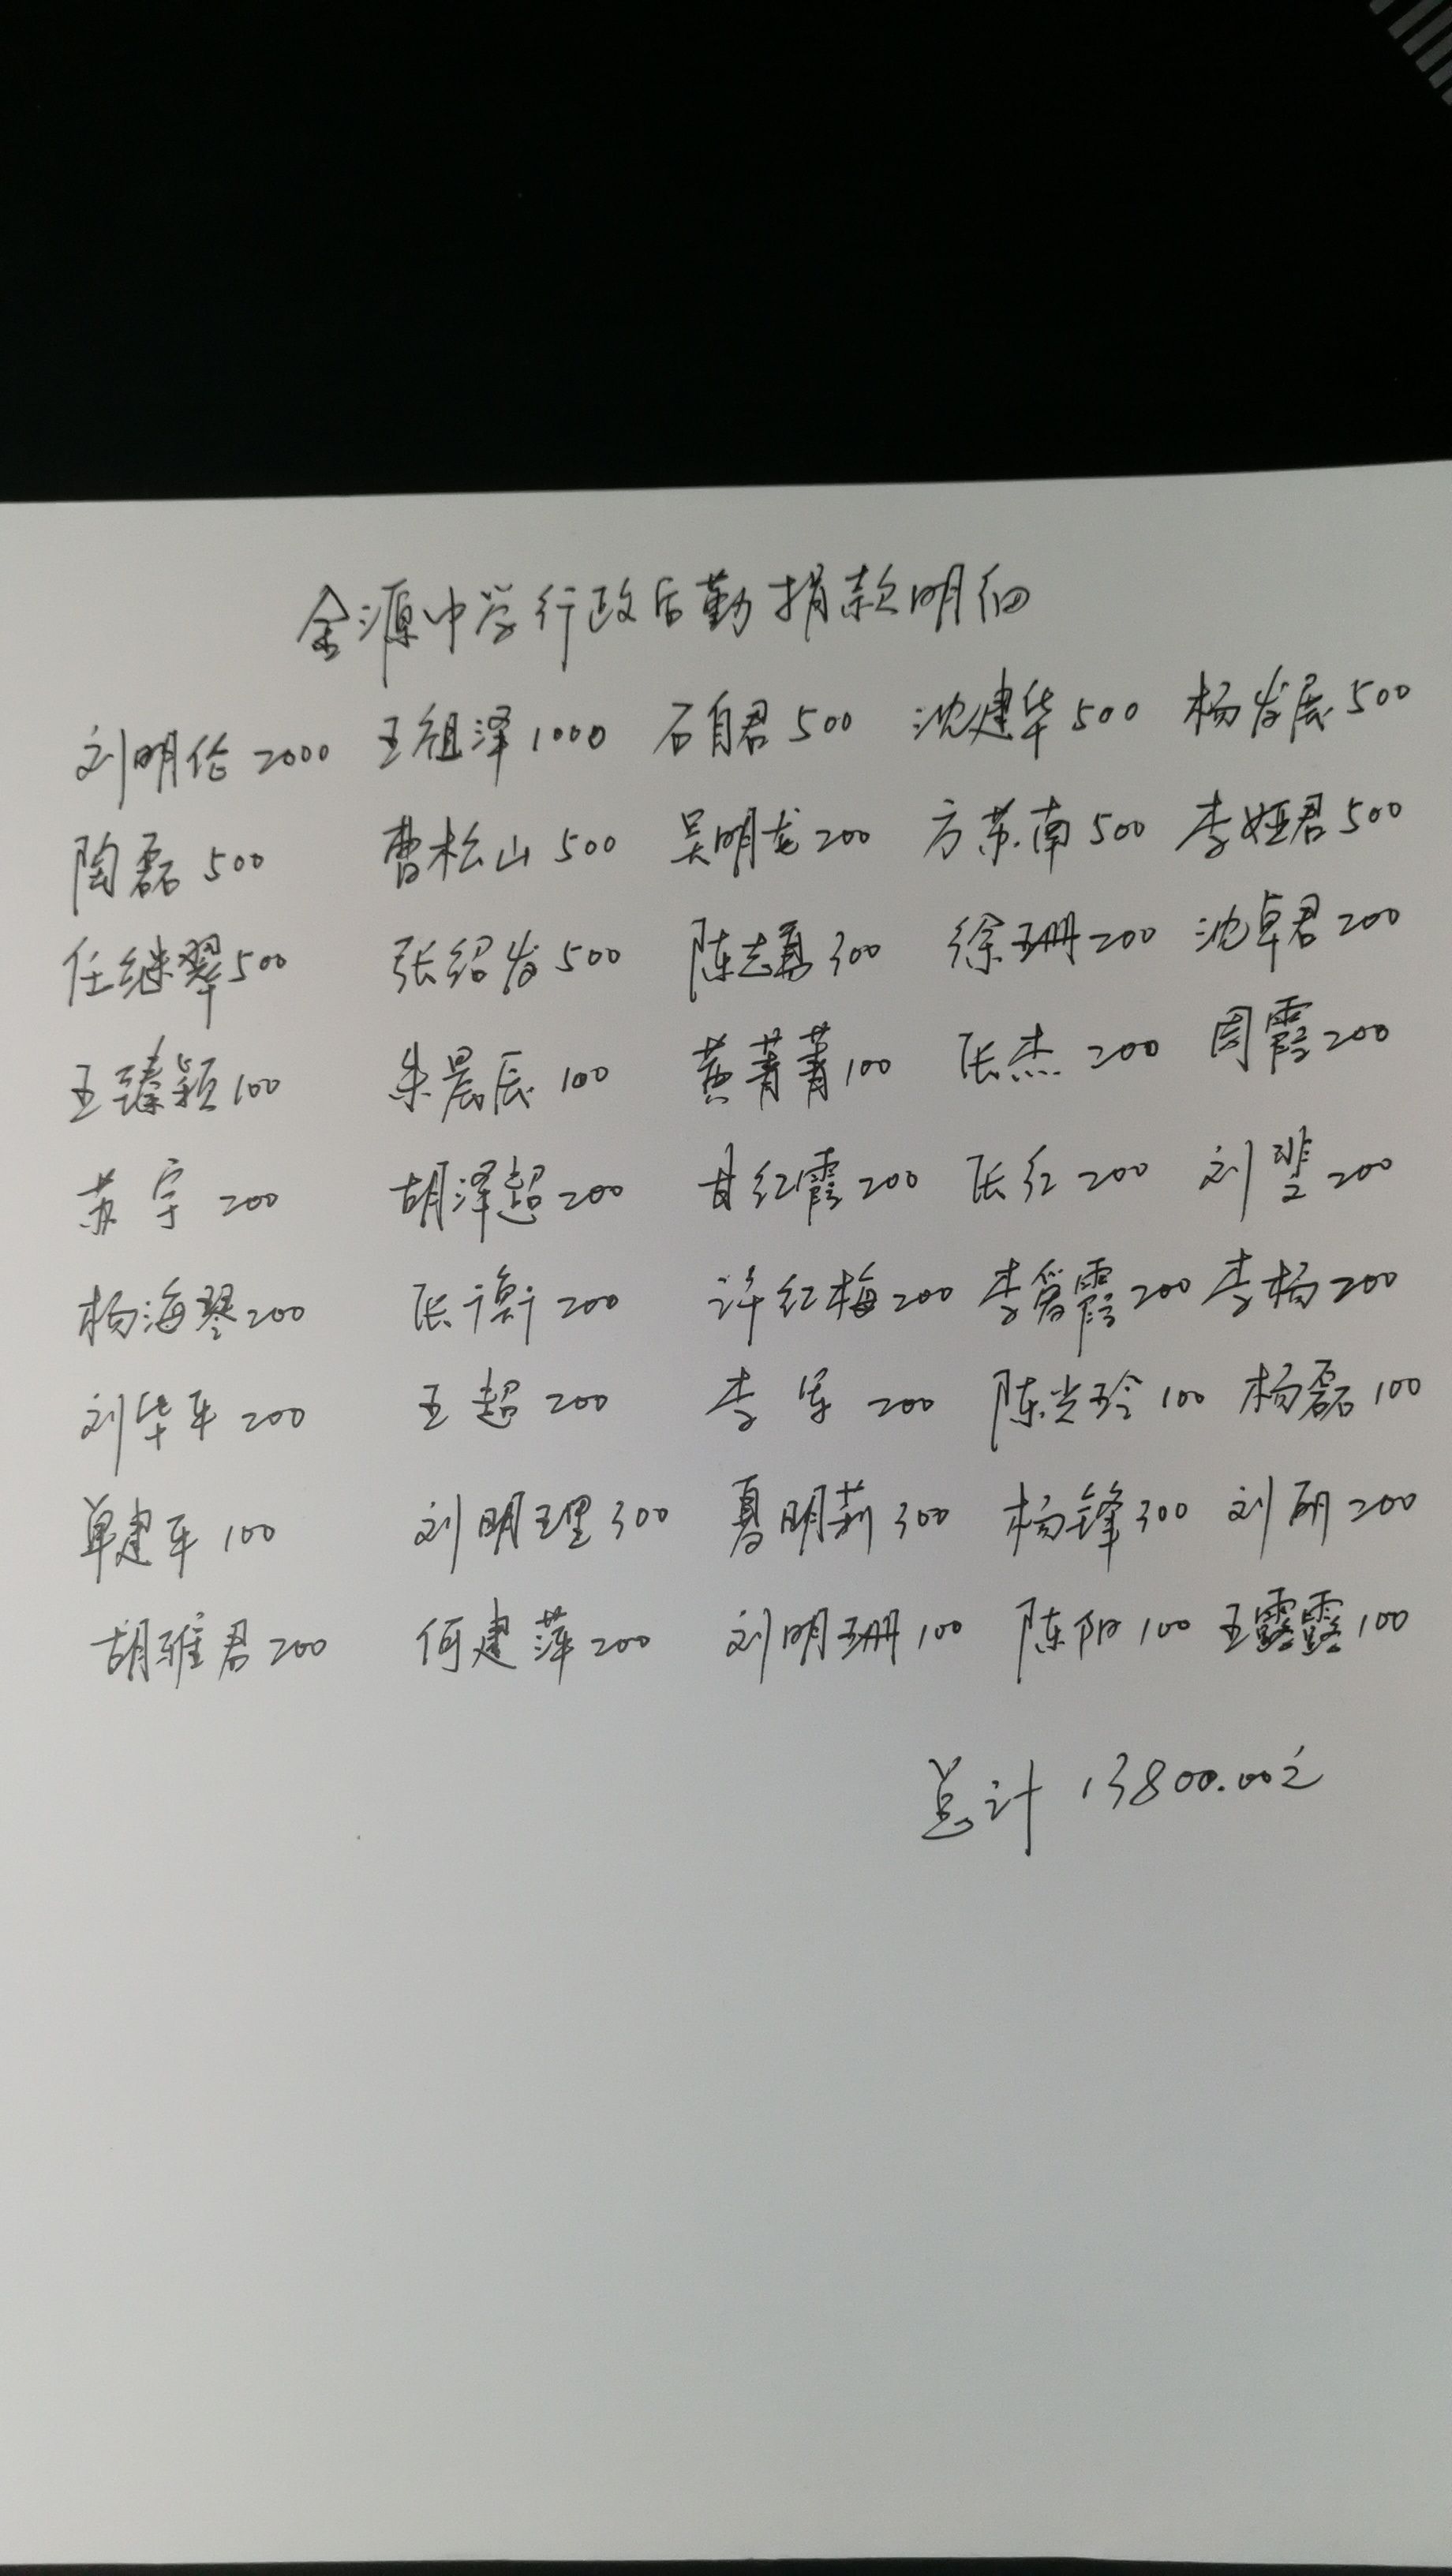 金源中学行政后勤捐款明细
刘明伦 2000 王祖泽 1000 石自君 500 沈建华 500 杨发展 500
陶磊 500 曹松山 500 吴明龙 200 方苏南 500 李娅君 500
任继翠 500 张绍发 500 陈志勇 300 徐珊 200 沈卓君 200
王臻颖 100 朱晨辰 100 黄菁菁 100 张杰 200 周霞 200
苏宇 200 胡泽超 200 甘红霞 200 张红 200 刘 200
杨海琴 200 张衡 200 许红梅 200 李霞 200 李杨 200
刘华军 200 王超 200 李军 200 陈光玲 100 杨磊 100
单建军 100 刘明理 300 夏明莉 300 杨锋 300 刘丽 200
胡雅君 200 何建萍 200 刘明珊 100 陈阳 100 王露露 100
总计 13800.00元